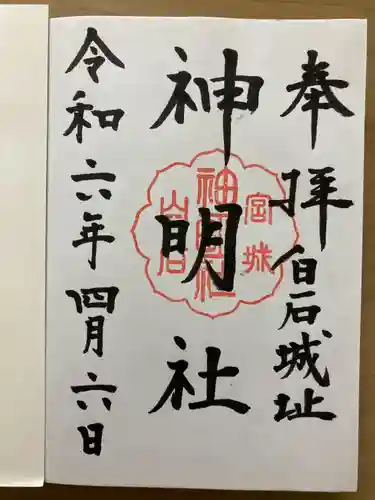 奉拝 白石城址
神明社
令和六年四月六日
宮城
神明社
白石